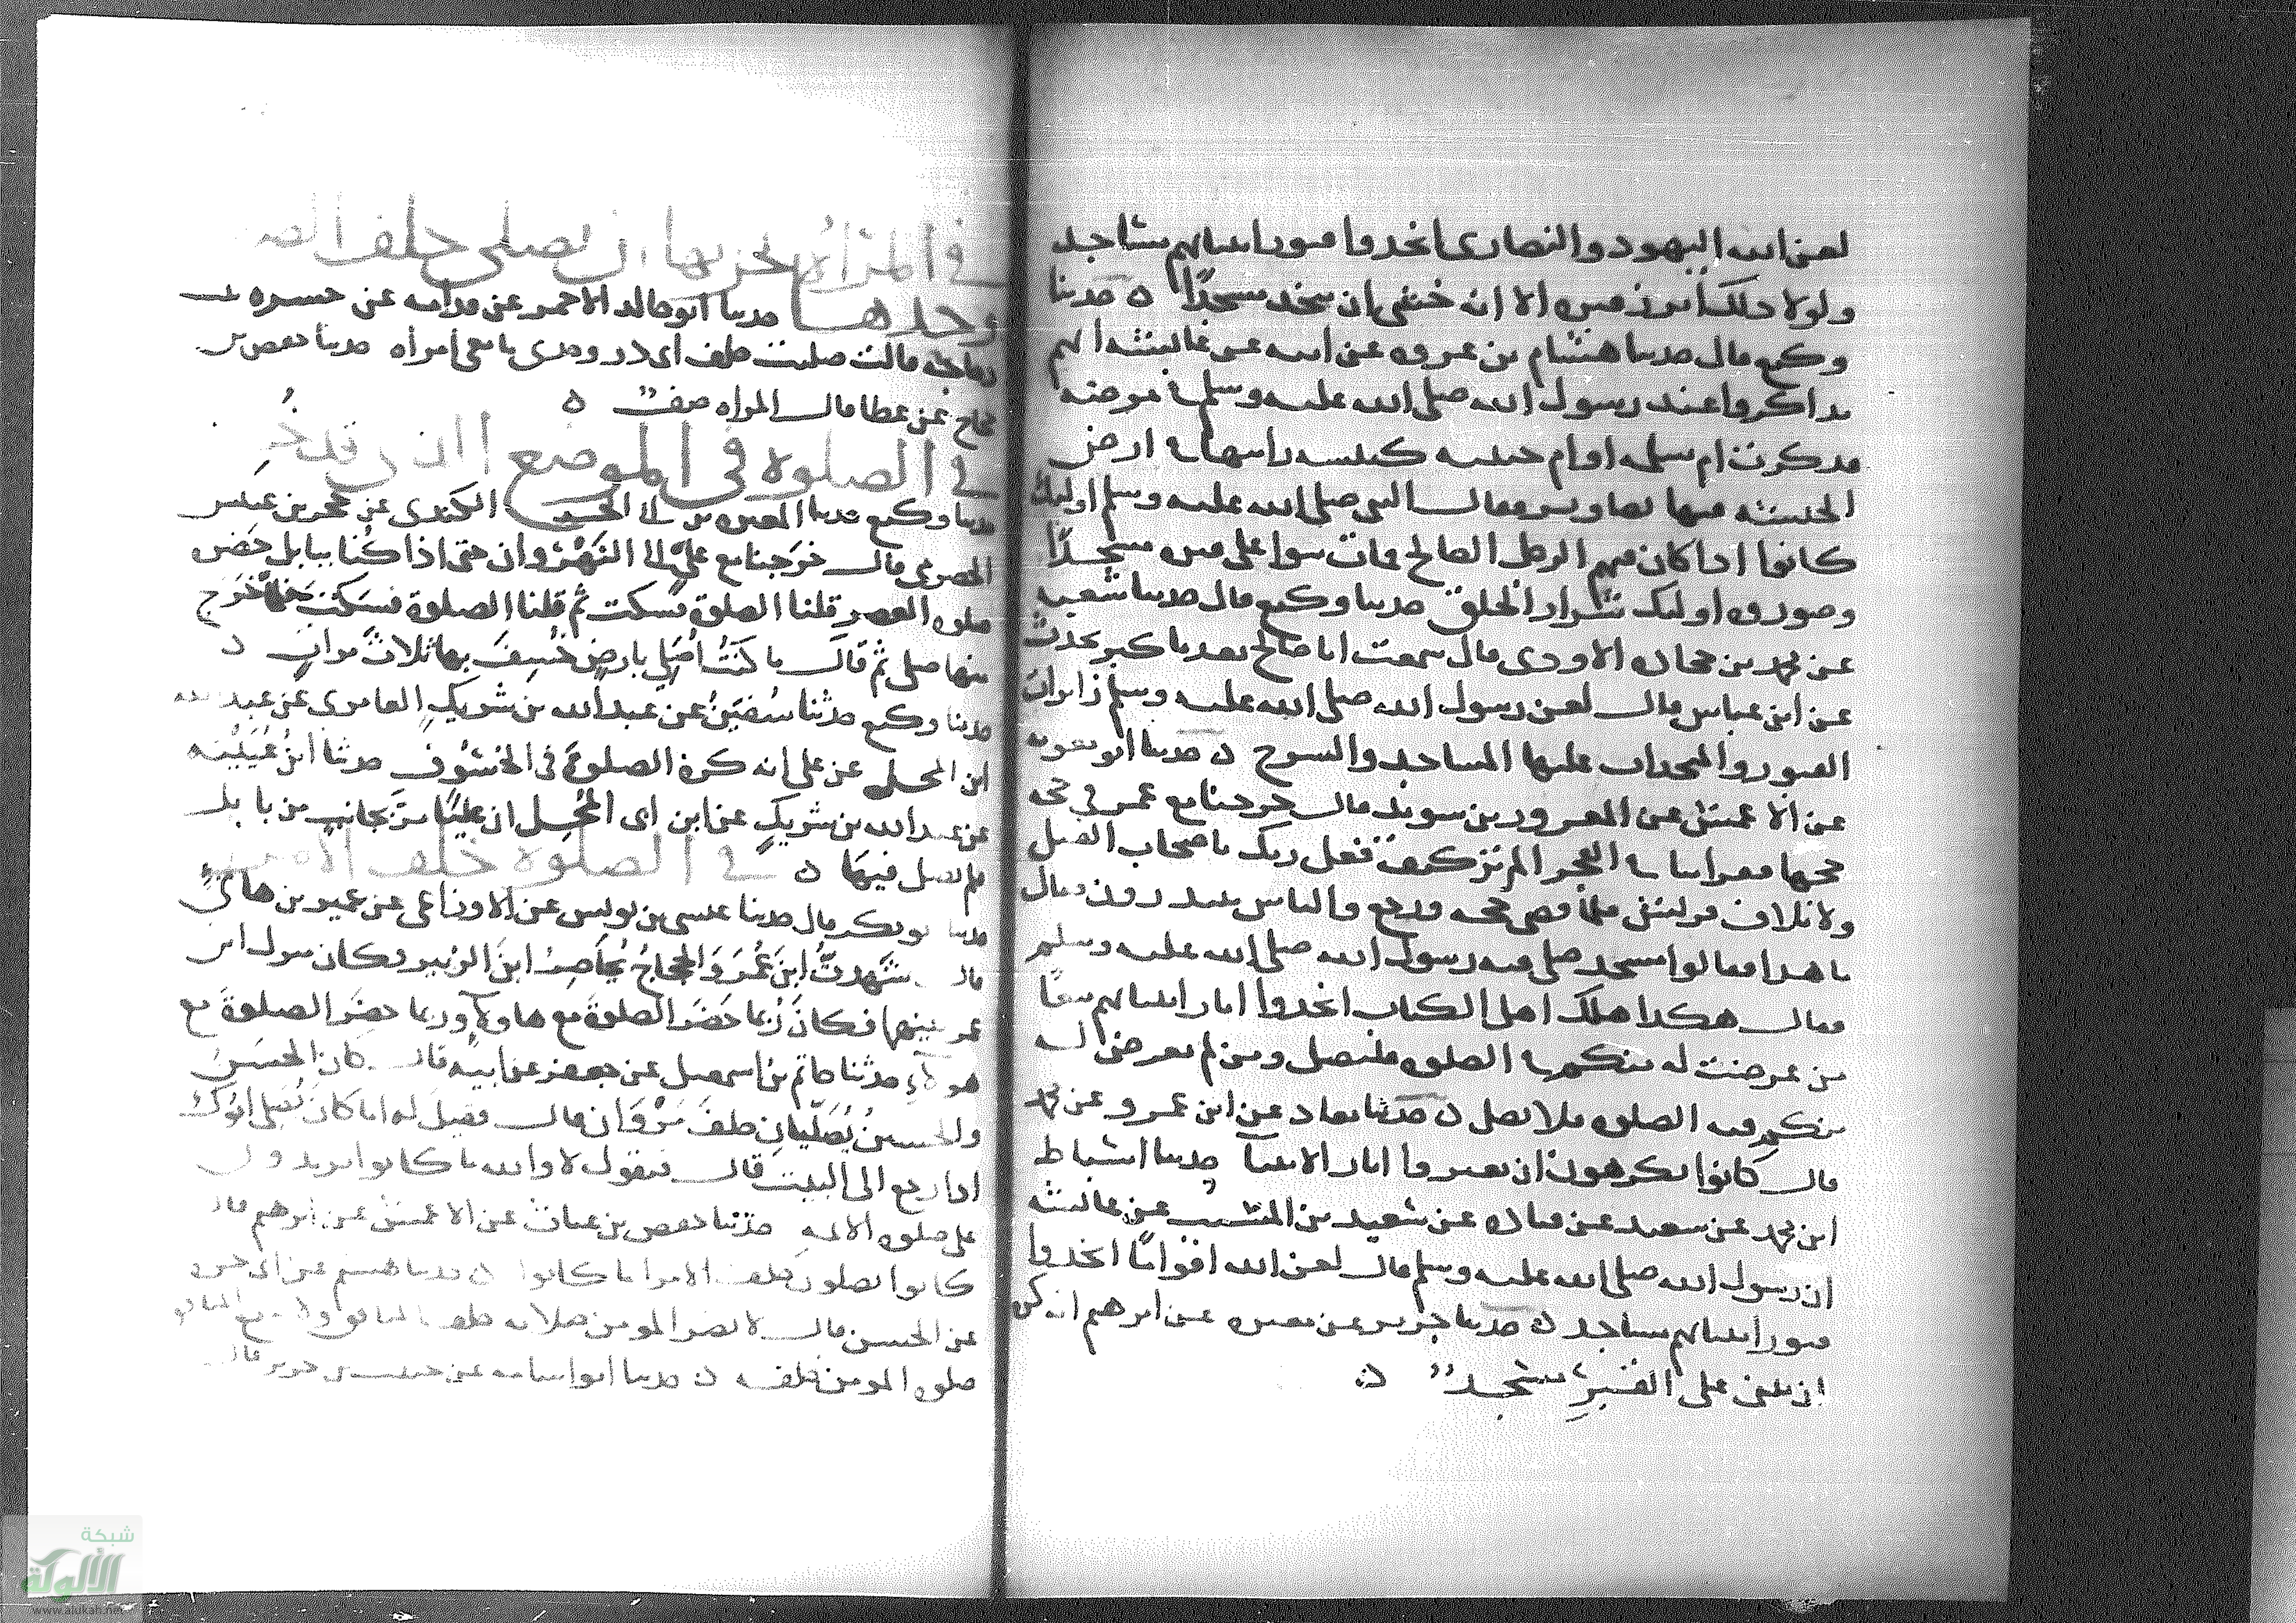 لعن الله اليهود والنصارى اتخذوا قبور انبيائهم مساجد
ولولا ذلك أبرز قبره الا انه خشي ان يتخذ مسجدًا ه حدثنا
وكيع قال حدثنا هشام بن عروه عن ابيه عن عائشه انهم
تذاكروا عند رسول الله صلى الله عليه وسلم في مرضه
فذكرت ام سلمه او ام حبيبه كنيسه راتها في ارض
الحبشه فيها تصاوير فقال النبي صلى الله عليه وسلم اوليك
كانوا اذا كان فيهم الرجل الصالح فمات بنوا على قبره مسجدًا
وصوروه اوليك شرار الخلق حدثنا وكيع قال حدثنا شعبه
عن محمد بن جحاده الاودي قال سمعت ابا صالح بعد ما كبر يحدث
عن ابن عباس قال لعن رسول الله صلى الله عليه وسلم زايرات
القبور والمتخذات عليها المساجد والسرج ه حدثنا ابو معويه
عن الاعمش عن المعرور بن سويد قال خرجنا مع عمر في حجه
حجها فقرا بنا في الفجر الم تر كيف فعل ربك باصحاب الفيل
ولايلاف قريش فلما قضى حجه ورجع والناس يبتدرون فقال
ما هذا فقالوا مسجد صلى فيه رسول الله صلى الله عليه وسلم
فقال هكذا هلك اهل الكتاب اتخذوا اثار انبيائهم بيعًا
من عرضت له منكم فيه الصلوه فليصل ومن لم تعرض له
منكم فيه الصلوه فلا يصل ه حدثنا معاذ عن ابن عمرو عن محمد
قال كانوا يكرهون ان يغيروا اثار الانبيآ حدثنا اسباط
ابن محمد عن سعيد عن قتاده عن سعيد بن المسيب عن عائشه
ان رسول الله صلى الله عليه وسلم قال لعن الله اقوامًا اتخذوا
قبور انبيائهم مساجد ه حدثنا جرير عن مغيره عن ابرهيم انه كره
ان يبنى على القبر مسجد ه
في المراة تخر بها ان تصلي خلف الصف
وحدها حدثنا ابو خالد الاحمر عن قدامه عن جسره
دجاجه قالت صليت خلف ابي ذر وحدي ما معي امراه حدثنا حفص عن
حجاج عن عطا قال المراه صف ه
في الصلوه في الموضع الذي قد خسف
حدثنا وكيع حدثنا المغيره بن ابي الحر الكندي عن حجر بن عنبس
الحضرمي قال خرجنا مع علي الى النهروان حتى اذا كنا ببابل حضر
صلوه العصر قلنا الصلوة فسكت ثم قلنا الصلوة فسكت فلما خرج
منها صلى ثم قال ما كنت أصلي بارض خسف بها ثلاث مرات ه
حدثنا وكيع حدثنا سفين عن عبد الله بن شريك العامري عن عبد الله
ابن المحل عن علي انه كره الصلوة في الخسوف حدثنا ابن عيينه
عن عبد الله بن شريك عن ابن ابي المحل ان عليًا مر بجانب من بابل
فلم يصل فيها ه في الصلوة خلف الامرا
حدثنا ابو بكر قال حدثنا عيسى بن يونس عن الاوزاعي عن عمير بن هاني
قال شهدت ابن عمر والحجاج محاصر ابن الزبير فكان منزل ابن
عمر بينهما فكان ربما حضر الصلوة مع هاولآ وربما حضر الصلوة مع
هولآء حدثنا حاتم بن اسمعيل عن جعفر عن ابيه قال كان الحسن
والحسين يصليان خلف مروان قال فقيل له اما كان يصلي ابوك
اذا رجع الى البيت قال فيقول لا والله ما كانوا يزيدون
على صلوه الايمه حدثنا حفص بن غياث عن الاعمش عن ابرهيم قال
كانوا يصلون خلف الامرا ما كانوا ه حدثنا هشيم عن ابي حره
عن الحسن قال لا يضر المومن صلاته خلف المنافق ولا ينفع المنافق
صلوه المومن خلفه ه حدثنا ابو اسامه عن حبيب بن جري قال
شبكة
الألوكة
www.alukah.net